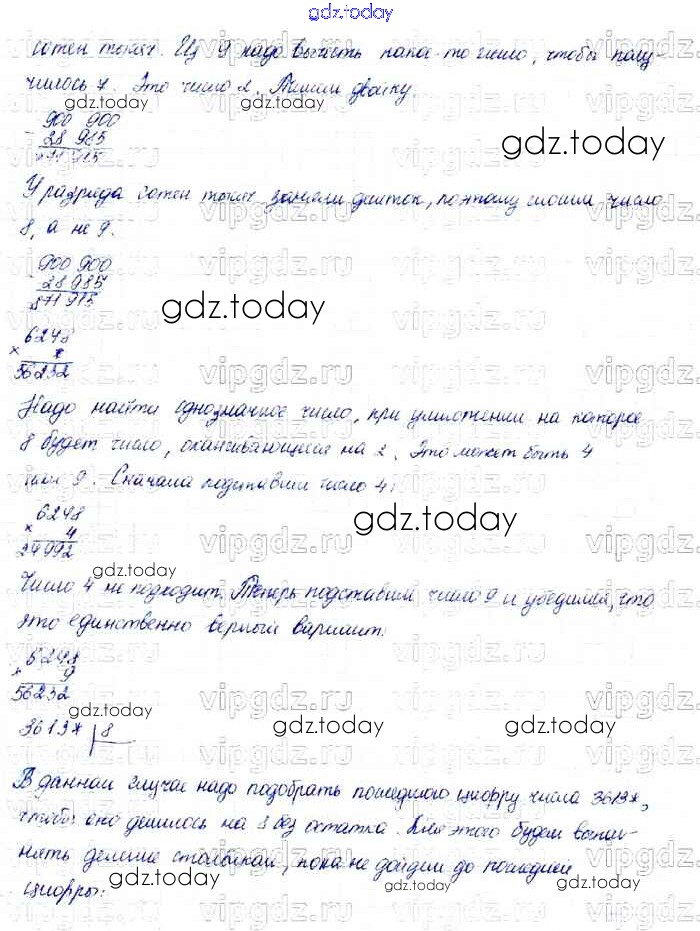 gdz.today
сотен тысяч. Из 9 надо вычесть какое-то число, чтобы полу-
чилось 7. Это число 2. Пишем двойку.
gdz.today
900 900
- 28 985
*71 915
gdz.today
У разряда сотен тысяч заняли десяток, поэтому пишем число
8, а не 9.
900 900
28 985
871 915
gdz.today
6248
× *
56232
Надо найти однозначное число, при умножении на которое
8 будет число, оканчивающееся на 2. Это может быть 4
или 9. Сначала подставим число 4:
6248
× 4
24992
gdz.today
gdz.today
Число 4 не подходит. Теперь подставим число 9 и убедимся, что
это единственно верный вариант:
6248
× 9
56232
gdz.today
gdz.today
gdz.today
3613* 8
В данном случае надо подобрать последнюю цифру числа 3613*,
чтобы оно делилось на 8 без остатка. Для этого будем выпол-
нять деление столбиком, пока не дойдем до последней
цифры:
gdz.today
gdz.today